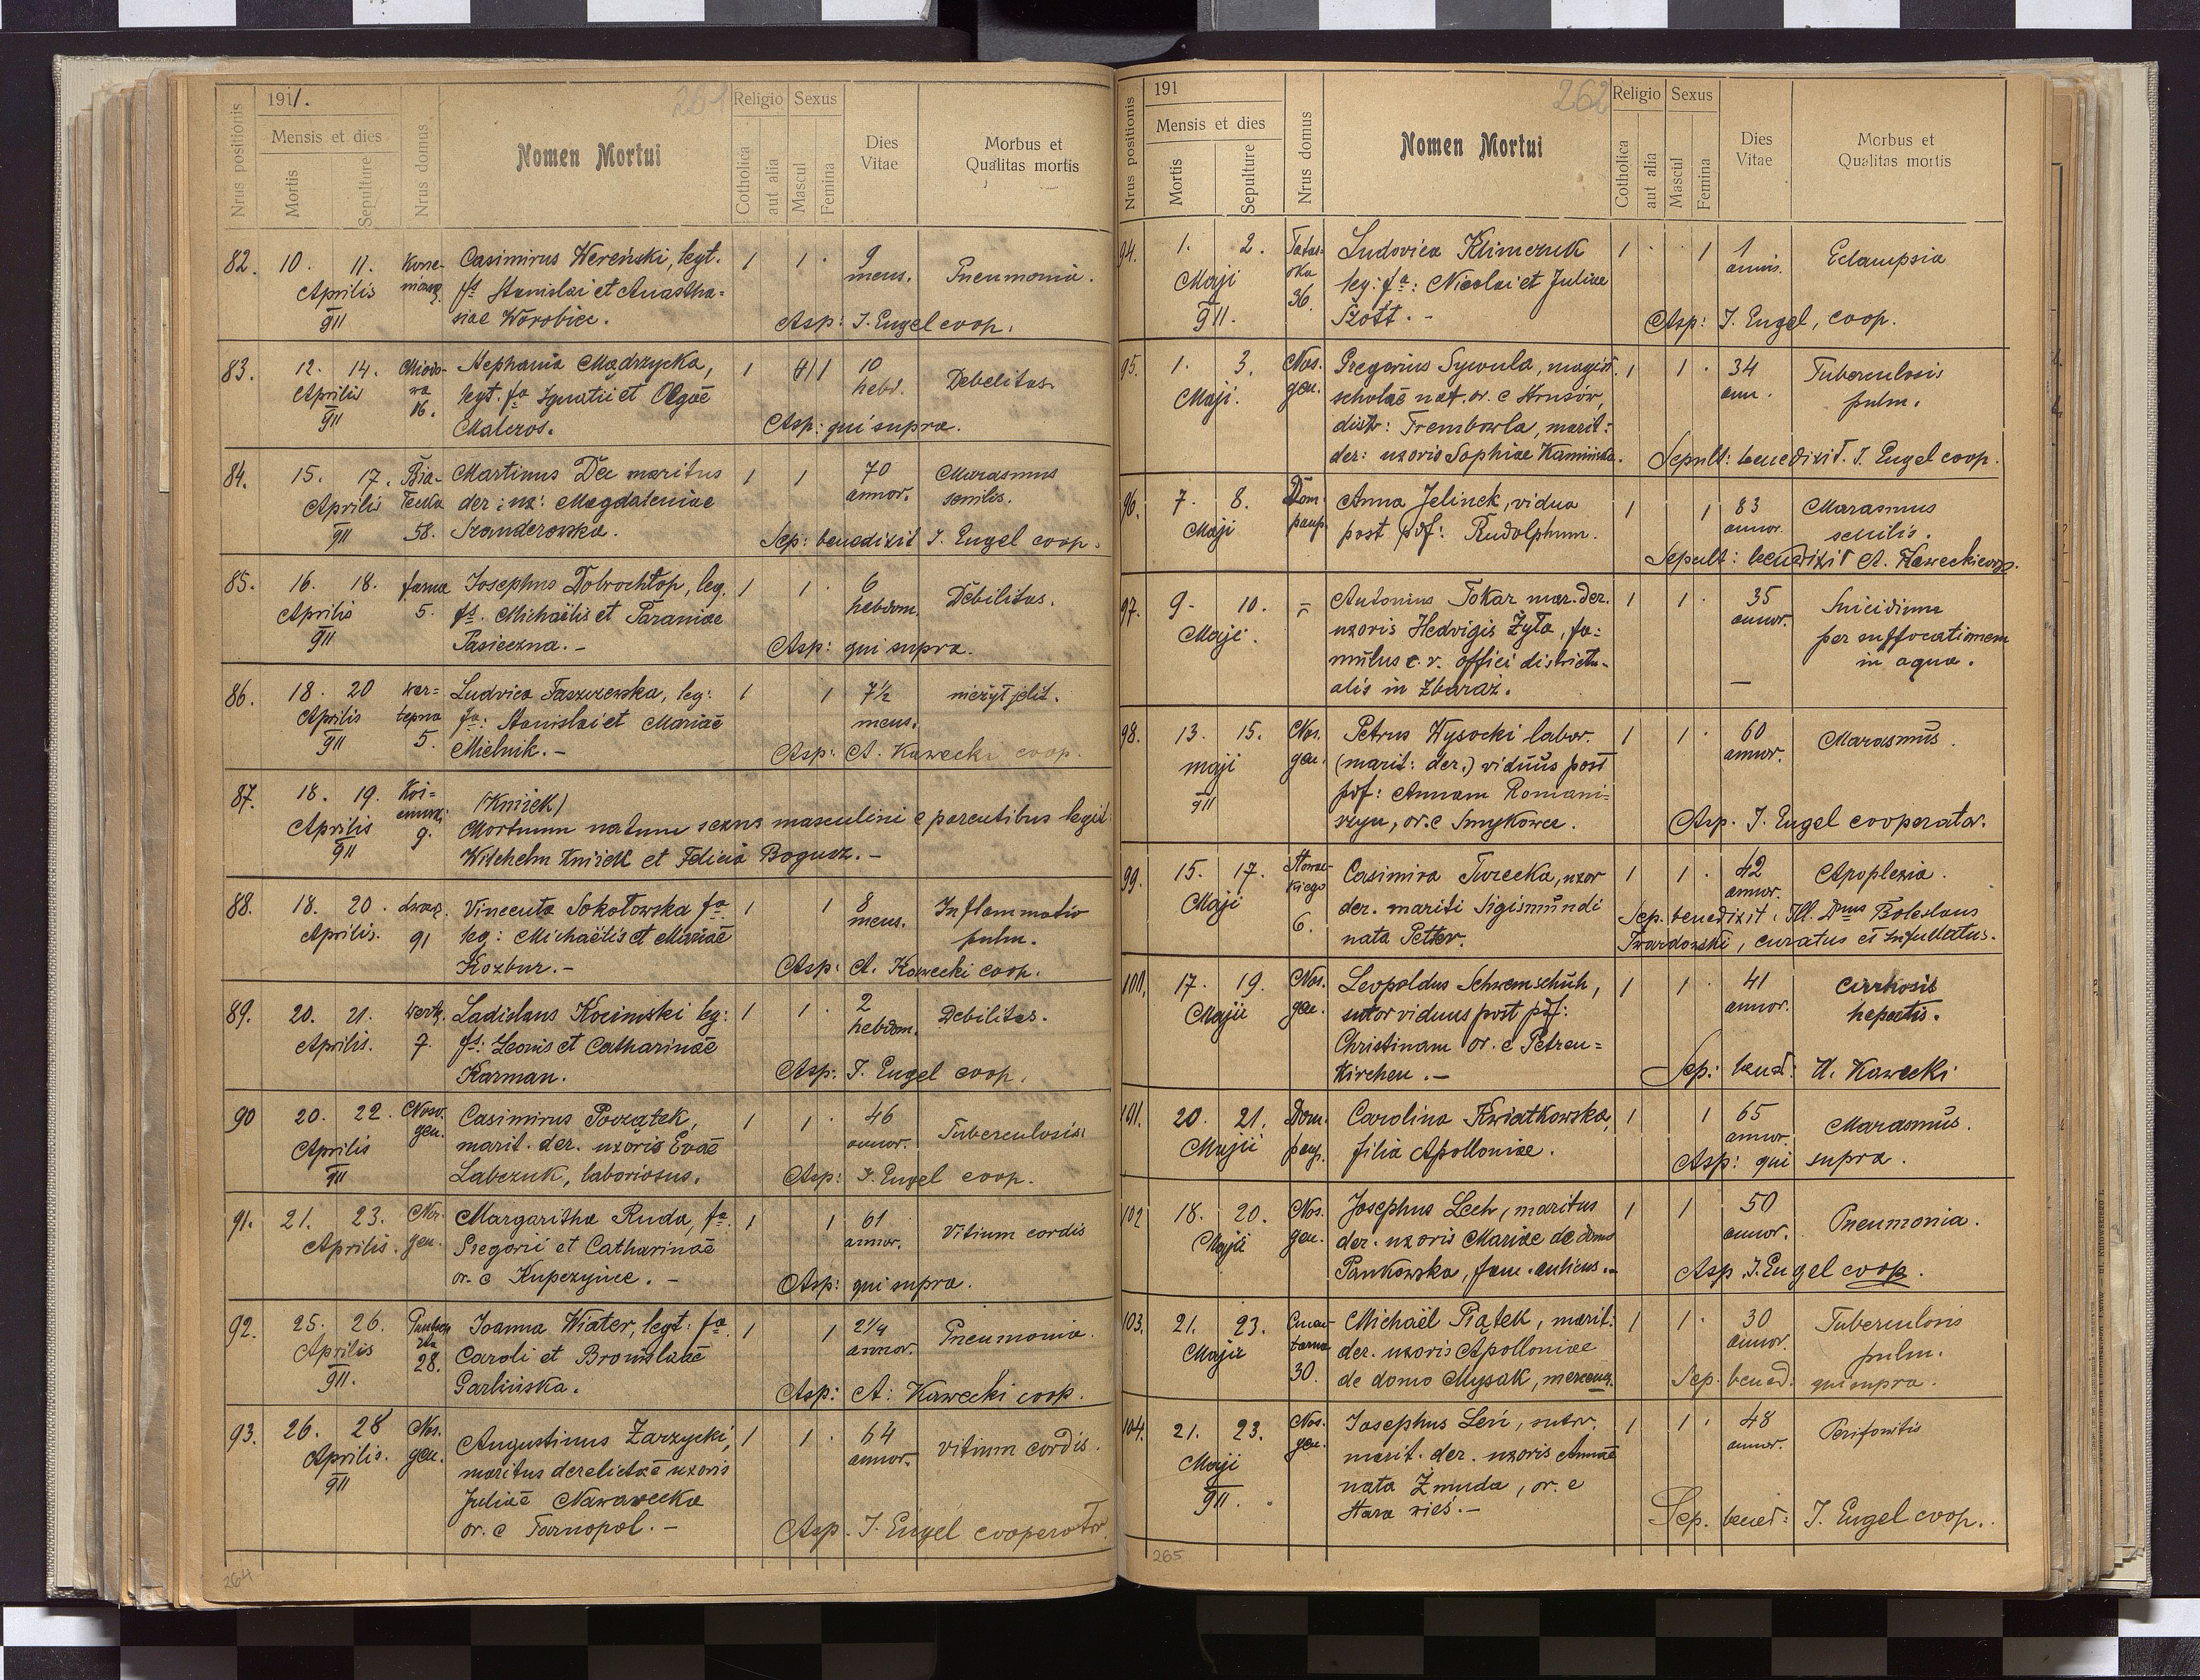 1911.
261
Religio Sexus
Mensis et dies
Nrus positionis
Mortis
Sepulture
Nrus domus
Nomen Mortui
Cotholica
aut alia
Mascul
Femina
Dies Vitae
Morbus et
Qualitas mortis
82. 10. 11. Casimirus Wereński, legt. 1 1 . 9
Aprilis fs Stanislai et Anastha= mens. Pneumonia.
911 siae Worobiec. Asp: J. Engel coop.
83. 12. 14. Stephania Mądrzycka, 1 1 10
Aprilis legt. fa Ignatii et Olgae hebd. Debelitas
911 16. Maleros. Asp: qui supra.
84. 15. 17. Bia- Martinus Dec maritus 1 1 70 Marasmus
Aprilis der: ux: Magdalenae annor. senilis.
911 58. Szanderowska. Sep: benedixit J. Engel coop.
85. 16. 18. farna Josephus Dobrochłop, leg. 1 1 . 6
Aprilis 5. fs. Michaëlis et Paraniae hebdom. Debilitas.
911 Pasieczna. - Asp: qui supra.
86. 18. 20 Ludvica Taszczewska, leg: 1 1 7½ nieżyt jelit.
Aprilis fa: Stanislai et Mariae mens.
911 5. Mielnik. - Asp: A. Kawecki coop.
87. 18. 19. (Knisek)
Aprilis 9. Mortuum natum sexus masculini e parentibus legit:
911 Wilhelm Knisek et Felicia Bogusz. -
88. 18. 20. Lwow. Vincenta Sokołowska fa 1 1 8 Inflammatio
Aprilis. 91 leg: Michaëlis et Mariae mens. pulm.
Kozbur. - Asp: A. Kawecki coop.
89. 20. 21. Ladislaus Kocimski leg: 1 1 . 2 Debilitas.
Aprilis. 7. fs: Leonis et Catharinae hebdom.
Karman. Asp: J. Engel coop.
90 20. 22. Nos. Casimirus Początek, 1 1 . 46
Aprilis gen. marit. der. uxoris Evae annor. Tuberculosis
911 Labczuk, laboriosus. Asp: J. Engel coop.
91. 21. 23. Nos. Margaritha Ruda, fa. 1 1 61
Aprilis. gen. Gregorii et Catharinae annor. Vitium cordis
or. e Kupczyńce. - Asp: qui supra.
92. 25. 26. Joanna Wiater, legt. fa. 1 1 2¼
Aprilis 28. Caroli et Bronislavae annor. Pneumonia.
911. Garlińska. Asp: A. Kawecki coop.
93. 26. 28 Nos. Augustinus Zarzycki, 1 1 . 64
Aprilis. gen. maritus derelictae uxoris annor. Vitium cordis.
911 Juliae Nawarecka
or. e Tarnopol. - Asp. J. Engel cooperator.
264
191
262
Religio Sexus
Mensis et dies
Nrus positionis
Mortis
Sepulture
Nrus domus
Nomen Mortui
Cotholica
aut alia
Mascul
Femina
Dies Vitae
Morbus et
Qualitas mortis
94. 1. 2. Ludovica Klimczuk 1 . . 1 1 Eclampsia
Maji leg: fa: Nicolai et Juliae annis.
911. 36. Szott. - Asp: J. Engel, coop.
95. 1. 3. Nos. Gregorius Sywula, magist. 1 1 . 34 Tuberculosis
Maji. gen. scholae nat. or. e Strusów, ann. pulm.
distr: Trembowla, marit:
der: uxoris Sophiae Kamińska. Sepult: benedixit J. Engel coop.
96. 7. 8. Dom. Anna Jelinek, vidua 1 1 83 Marasmus
Maji paup. post pdf: Rudolphum. annor. senilis.
Sepult: benedixit A. Kawecki coop.
97. 9. 10. Antonius Tokar mar. der. 1 1 . 35 Suicidium
Maji. uxoris Hedvigis Żyła, fa= annor. per suffocationem
mulus c. r. offici districtu- in aqua.
alis in Zbaraż. —
98. 13. 15. Nos. Petrus Wysocki labor. 1 1 . 60 Marasmus.
maji gen. (marit: der.) viduus post annor.
911 pdf: Annam Romani=
szyn, or. e Smykowce. Asp. J. Engel cooperator.
99. 15. 17. Casimira Turecka, uxor 1 1 . 42 Apoplexia.
Maji der. mariti Sigismundi annor.
6. nata Petter. Sep. benedixit: Ill. Dnus Boleslaus
Twardowski, curatus et Infullatus.
100. 17. 19. Nos. Leopoldus Schwemschuh, 1 1 . 41 Cirrhosis
Maji gen. sutor viduus post pdf: annor. hepatis.
Christinam or. e Petren=
kirchen. - Sep: bened: A. Kawecki
101. 20. 21. Dom. Carolina Kwiatkowska, 1 1 65 Marasmus.
Maji paup. filia Apolloniae. annor.
Asp: qui supra.
102 18. 20. Nos. Josephus Lech, maritus 1 1 50 Pneumonia.
Maji gen. der. uxoris Mariae de domo annor.
Pankowska, fam. aulicus. - Asp. J. Engel coop.
103. 21. 23. Michaël Piątek, marit: 1 1 . 30 Tuberculosis
Maji der. uxoris Apolloniae annor. pulm.
30. de domo Mysak, mercena. Sep. bened: qui supra.
104. 21. 23. Nos. Josephus Leń, sutor, 1 1 . 48 Peritonitis
Maji gen. marit. der. uxoris Annae annor.
911. nata Żmuda, or. e
Stara wieś. - Sep. bened: J. Engel coop.
265